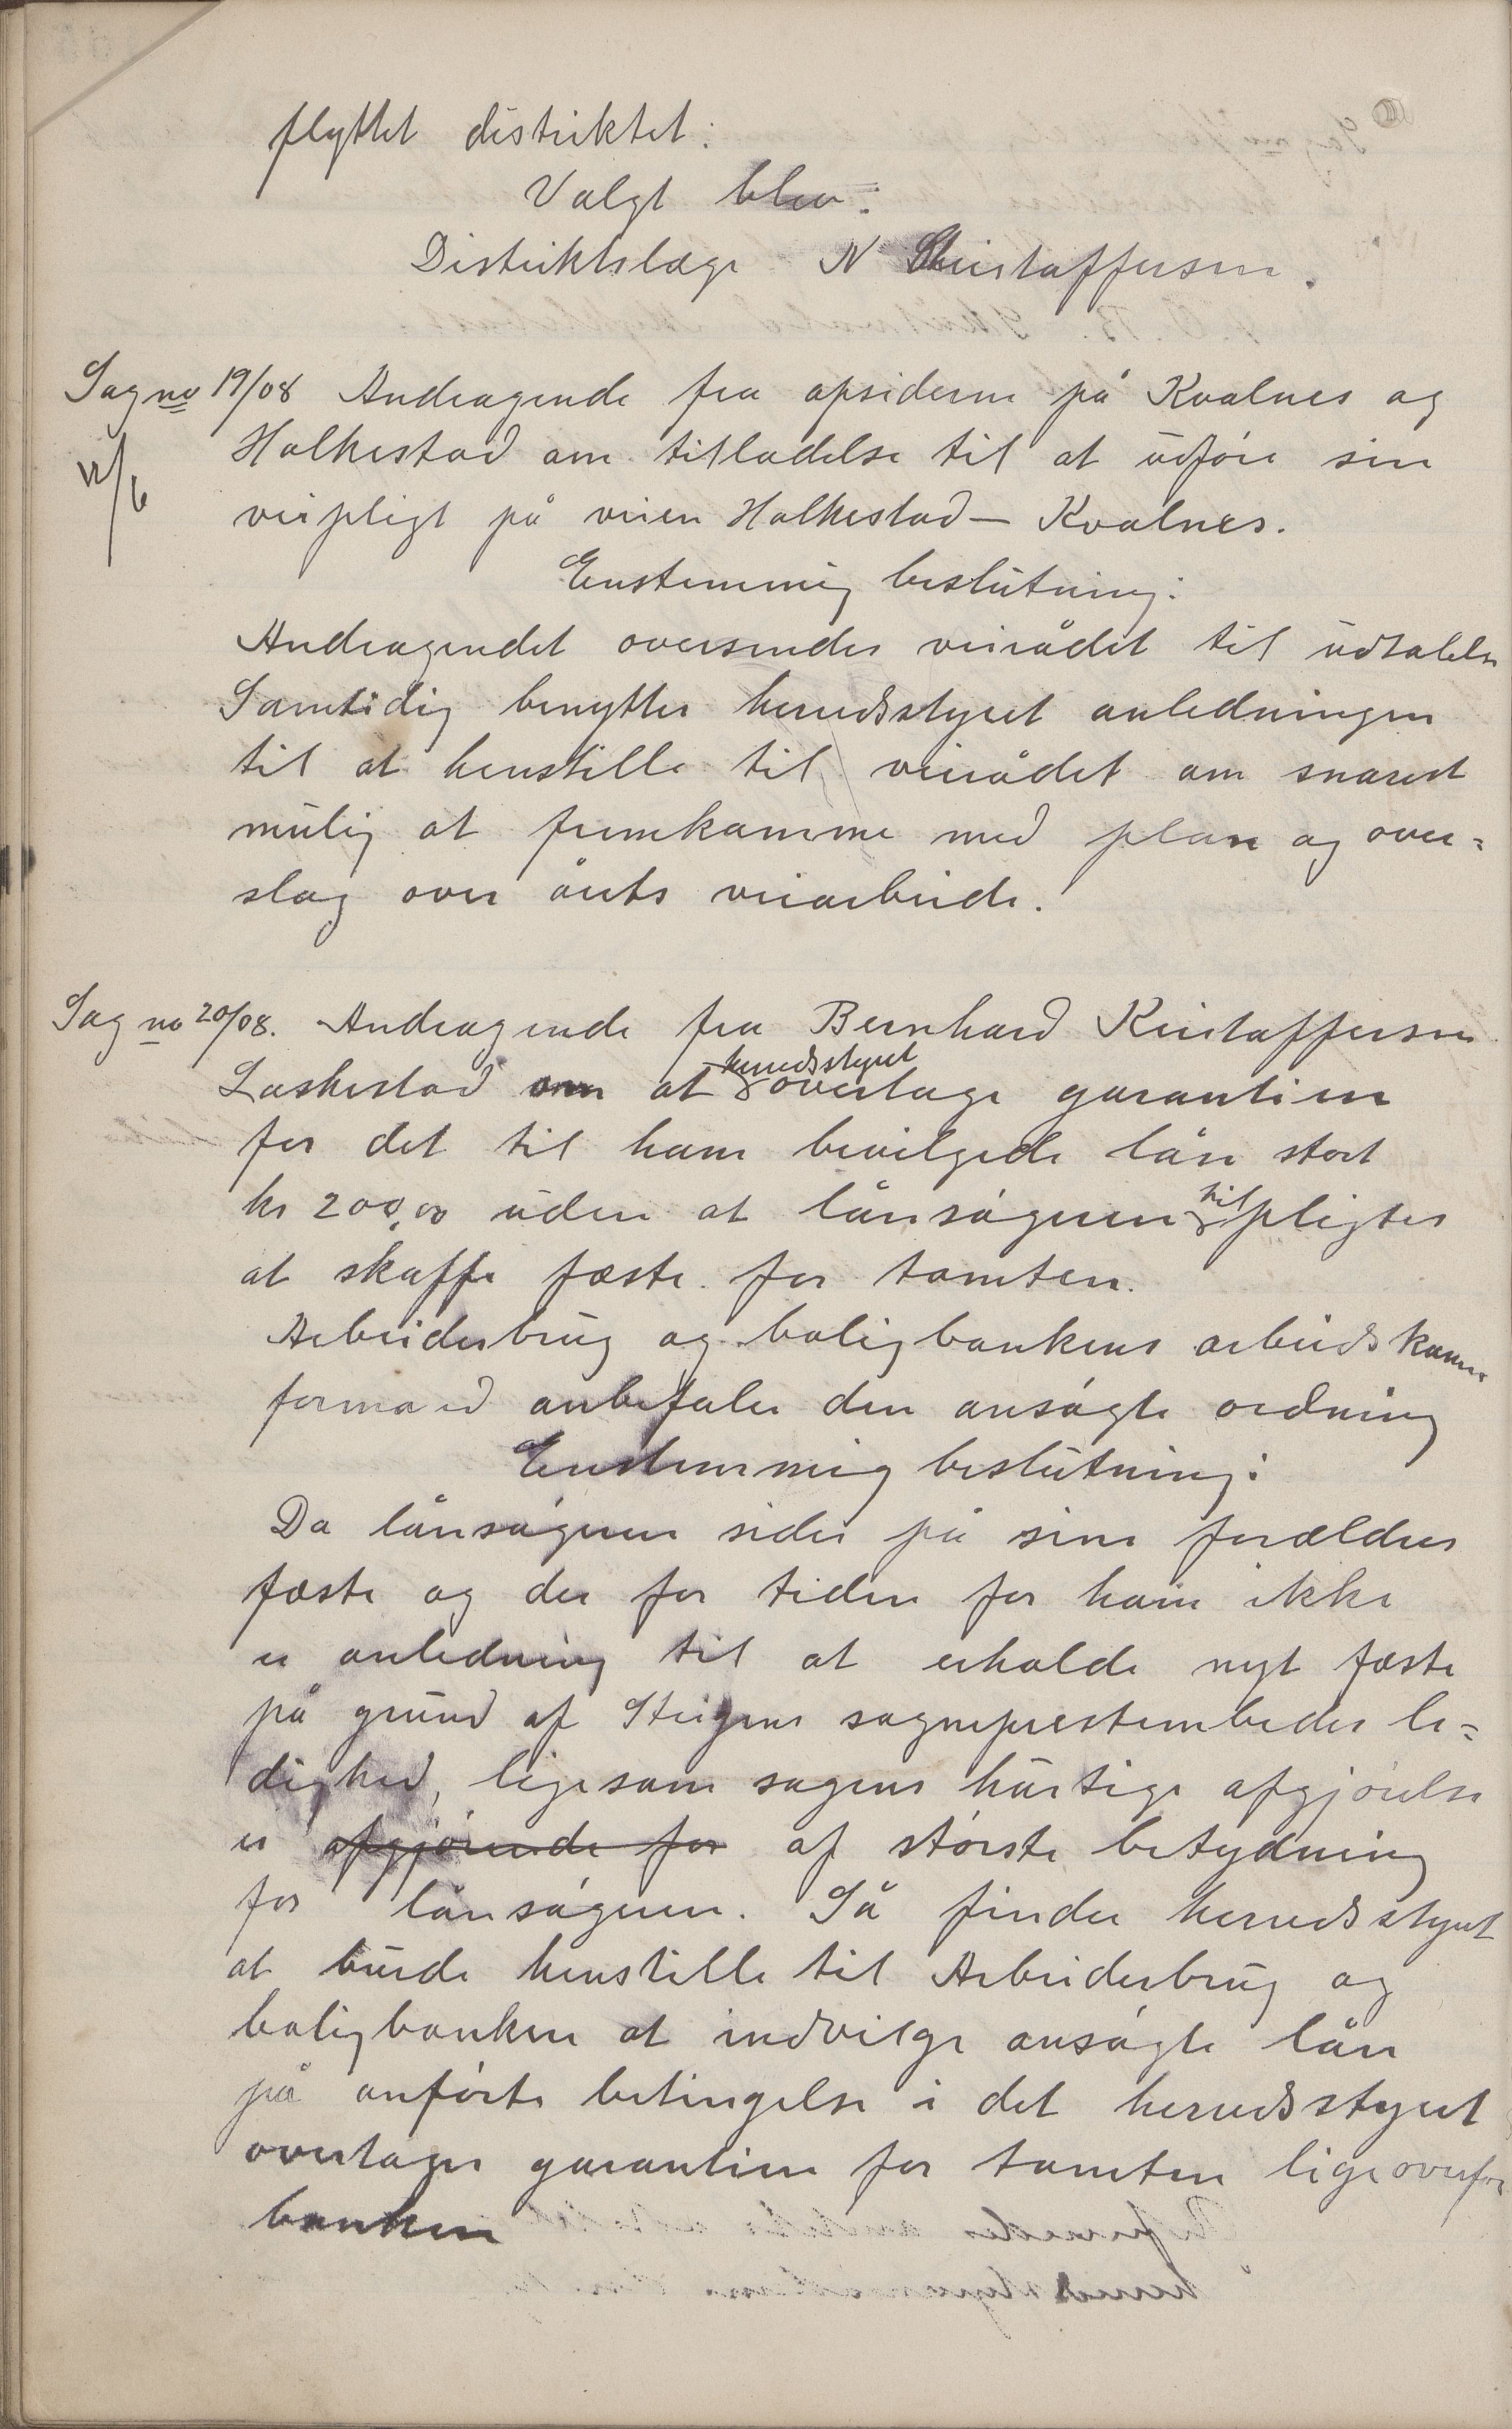 flyttet distriktet:
Valgt blev:
Distriktslæge N Kristoffersen.
Sag no 19/08 Andragende fra opsiderne på Kvalnes og
Holkestad om tilladelse til at udføre sin
12/6
veipligt på veien Holkestad – Kvalnes.
Enstemmig beslutning:
Andragendet oversendes veirådet til udtalelse
Samtidig benytter herredsstyret anledningen
til at henstille til veirådet om snarest
mulig at fremkomme med plan og over=
slag over årets veiarbeide.
Sag no 20/08. Andragende fra Bernhard Kristoffersen
Laskestad om at herredsstyret overtage garantien
for det til ham bevilgede lån stort
kr 200,00 uden at lånsøgeren tilpligtes
at skaffe fæste for tomten.
Arbeiderbrug og boligbankens arbeidskomm
formand anbefaler den ansøgte ordning
Enstemmig beslutning:
Da lånsøgeren sider på sine forældres
fæste og der for tiden for ham ikke
er anledning til at erholde nyt fæste
på grund af Steigens sogneprestembedes le=
dighed, ligesom sagens hurtige afgjørelse
er afgjørende for af største betydning
for lånsøgeren. Så finder herredsstyret
at burde henstille til Arbeiderbrug og
boligbanken at indvilge ansøgte lån
på anførte betingelse i det herredsstyret
overtager garantien for tomten ligeoverfor
banken